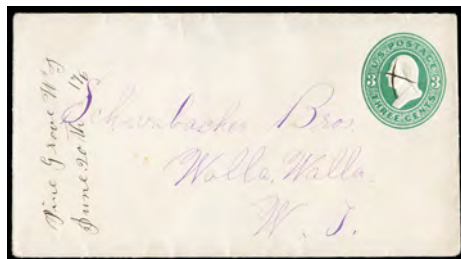 Pine Grove W T
June 20th
U.S. POSTAGE
3 3
THREE CENTS
Schwabacher Bros.
Walla Walla.
W. T.